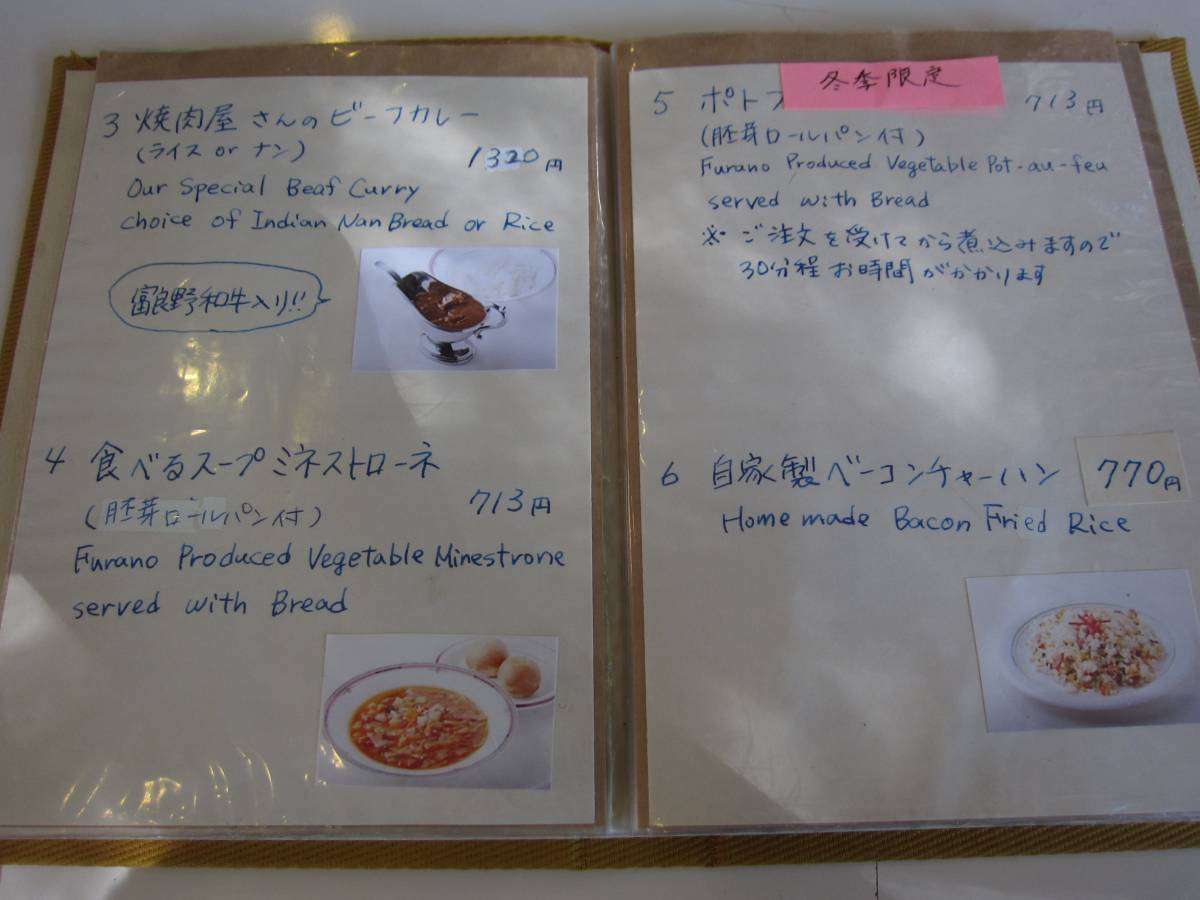 3 焼肉屋さんのビーフカレー
(ライス or ナン) 1320円
Our Special Beaf Curry
choice of Indian Nan Bread or Rice
富良野和牛入り!!
4 食べるスープミネストローネ
713円
(胚芽ロールパン付)
Furano Produced Vegetable Minestrone
served with Bread
冬季限定
5 ポトフ 713円
(胚芽ロールパン付)
Furano Produced Vegetable Pot-au-feu
served with Bread
※ ご注文を受けてから煮込みますので
30分程お時間がかかります
6 自家製ベーコンチャーハン 770円
Home made Bacon Fried Rice